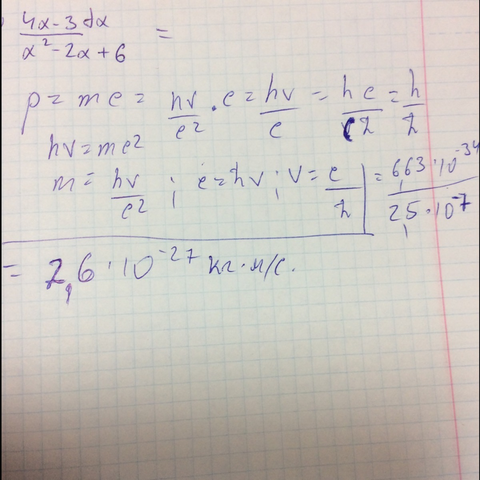 4x-3dx / x²-2x+6 =
p = mc = hv/c² · c = hv/c = hc/cλ = h/λ
hv = mc²
m = hv/c² ; c = λv ; v = c/λ | = 6,63·10⁻³⁴ / 2,5·10⁻⁷
= 2,6·10⁻²⁷ кг·м/с.